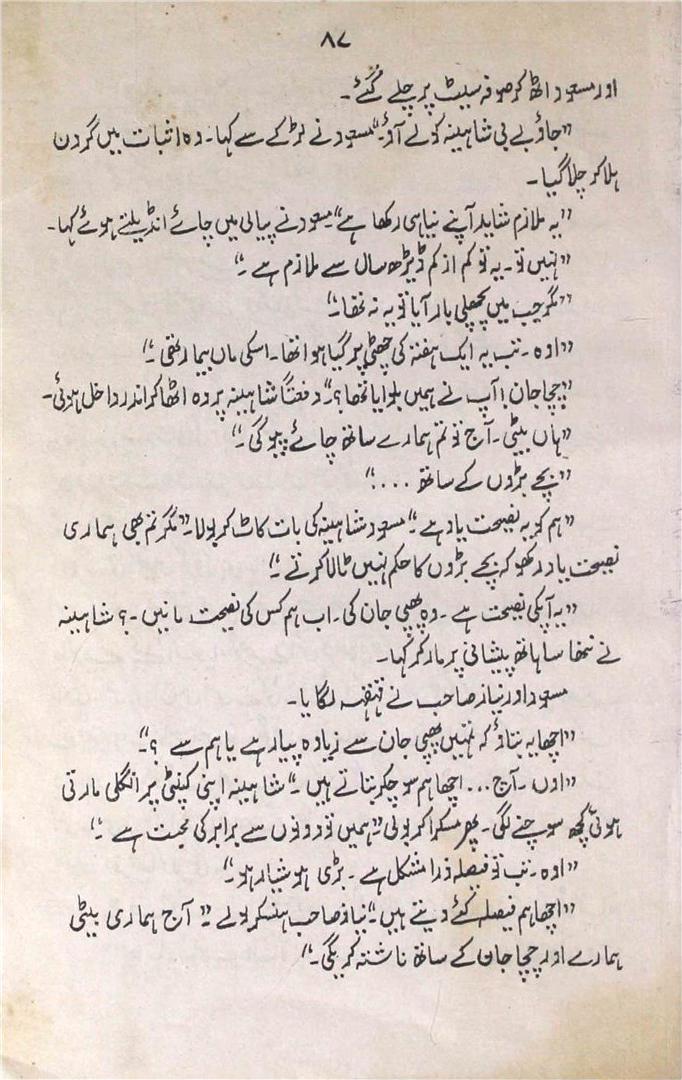 ۸۷
اور مسعود اٹھ کر صوفہ سیٹ پر چلے گئے۔
”جاؤ بے بی شاہینہ کو لے آؤ۔“ مسعود نے لڑکے سے کہا۔ وہ اثبات میں گردن
ہلا کر چلا گیا۔
”یہ ملازم شاید آپنے نیا ہی رکھا ہے“ مسعود نے پیالی میں چائے انڈیلتے ہوئے کہا۔
”نہیں تو۔ یہ تو کم از کم ڈیڑھ سال سے ملازم ہے۔“
”مگر جب میں پچھلی بار آیا تو یہ نہ تھا۔“
”اوہ۔ تب یہ ایک ہفتہ کی چھٹی پر گیا ہوا تھا۔ اسکی ماں بیمار تھی۔“
”چچا جان! آپ نے ہمیں بلوایا تھا؟“ دفعتاً شاہینہ پردہ اٹھا کر اندر داخل ہوئی۔
”ہاں بیٹی۔ آج تو تم ہمارے ساتھ چائے پیو گی۔“
”بچے بڑوں کے ساتھ ...۔“
”ہم کو یہ نصیحت یاد ہے۔“ مسعود شاہینہ کی بات کاٹ کر بولا۔ ”مگر تم بھی ہماری
نصیحت یاد رکھو کہ بچے بڑوں کا حکم نہیں ٹالا کرتے۔“
”یہ آپکی نصیحت ہے۔ وہ پھپی جان کی۔ اب ہم کس کی نصیحت مانیں۔؟ شاہینہ
نے ننھا سا ہاتھ پیشانی پر مار کر کہا۔
مسعود اور نیاز صاحب نے قہقہہ لگایا۔
”اچھا یہ بتاؤ کہ تمہیں پھپی جان سے زیادہ پیار ہے یا ہم سے؟“
”اوں۔ آج... اچھا ہم سوچکر بتاتے ہیں۔“ شاہینہ اپنی کنپٹی پر انگلی مارتی
ہوئی کچھ سوچنے لگی۔ پھر مسکرا کر بولی ”ہمیں تو دونوں سے برابر کی محبت ہے۔“
”اوہ۔ تب تو فیصلہ ذرا مشکل ہے۔ بڑی ہوشیار ہو۔“
”اچھا ہم فیصلہ کئے دیتے ہیں۔“ نیاز صاحب ہنسکر بولے ”آج ہماری بیٹی
ہمارے اور چچا جان کے ساتھ ناشتہ کریگی۔“